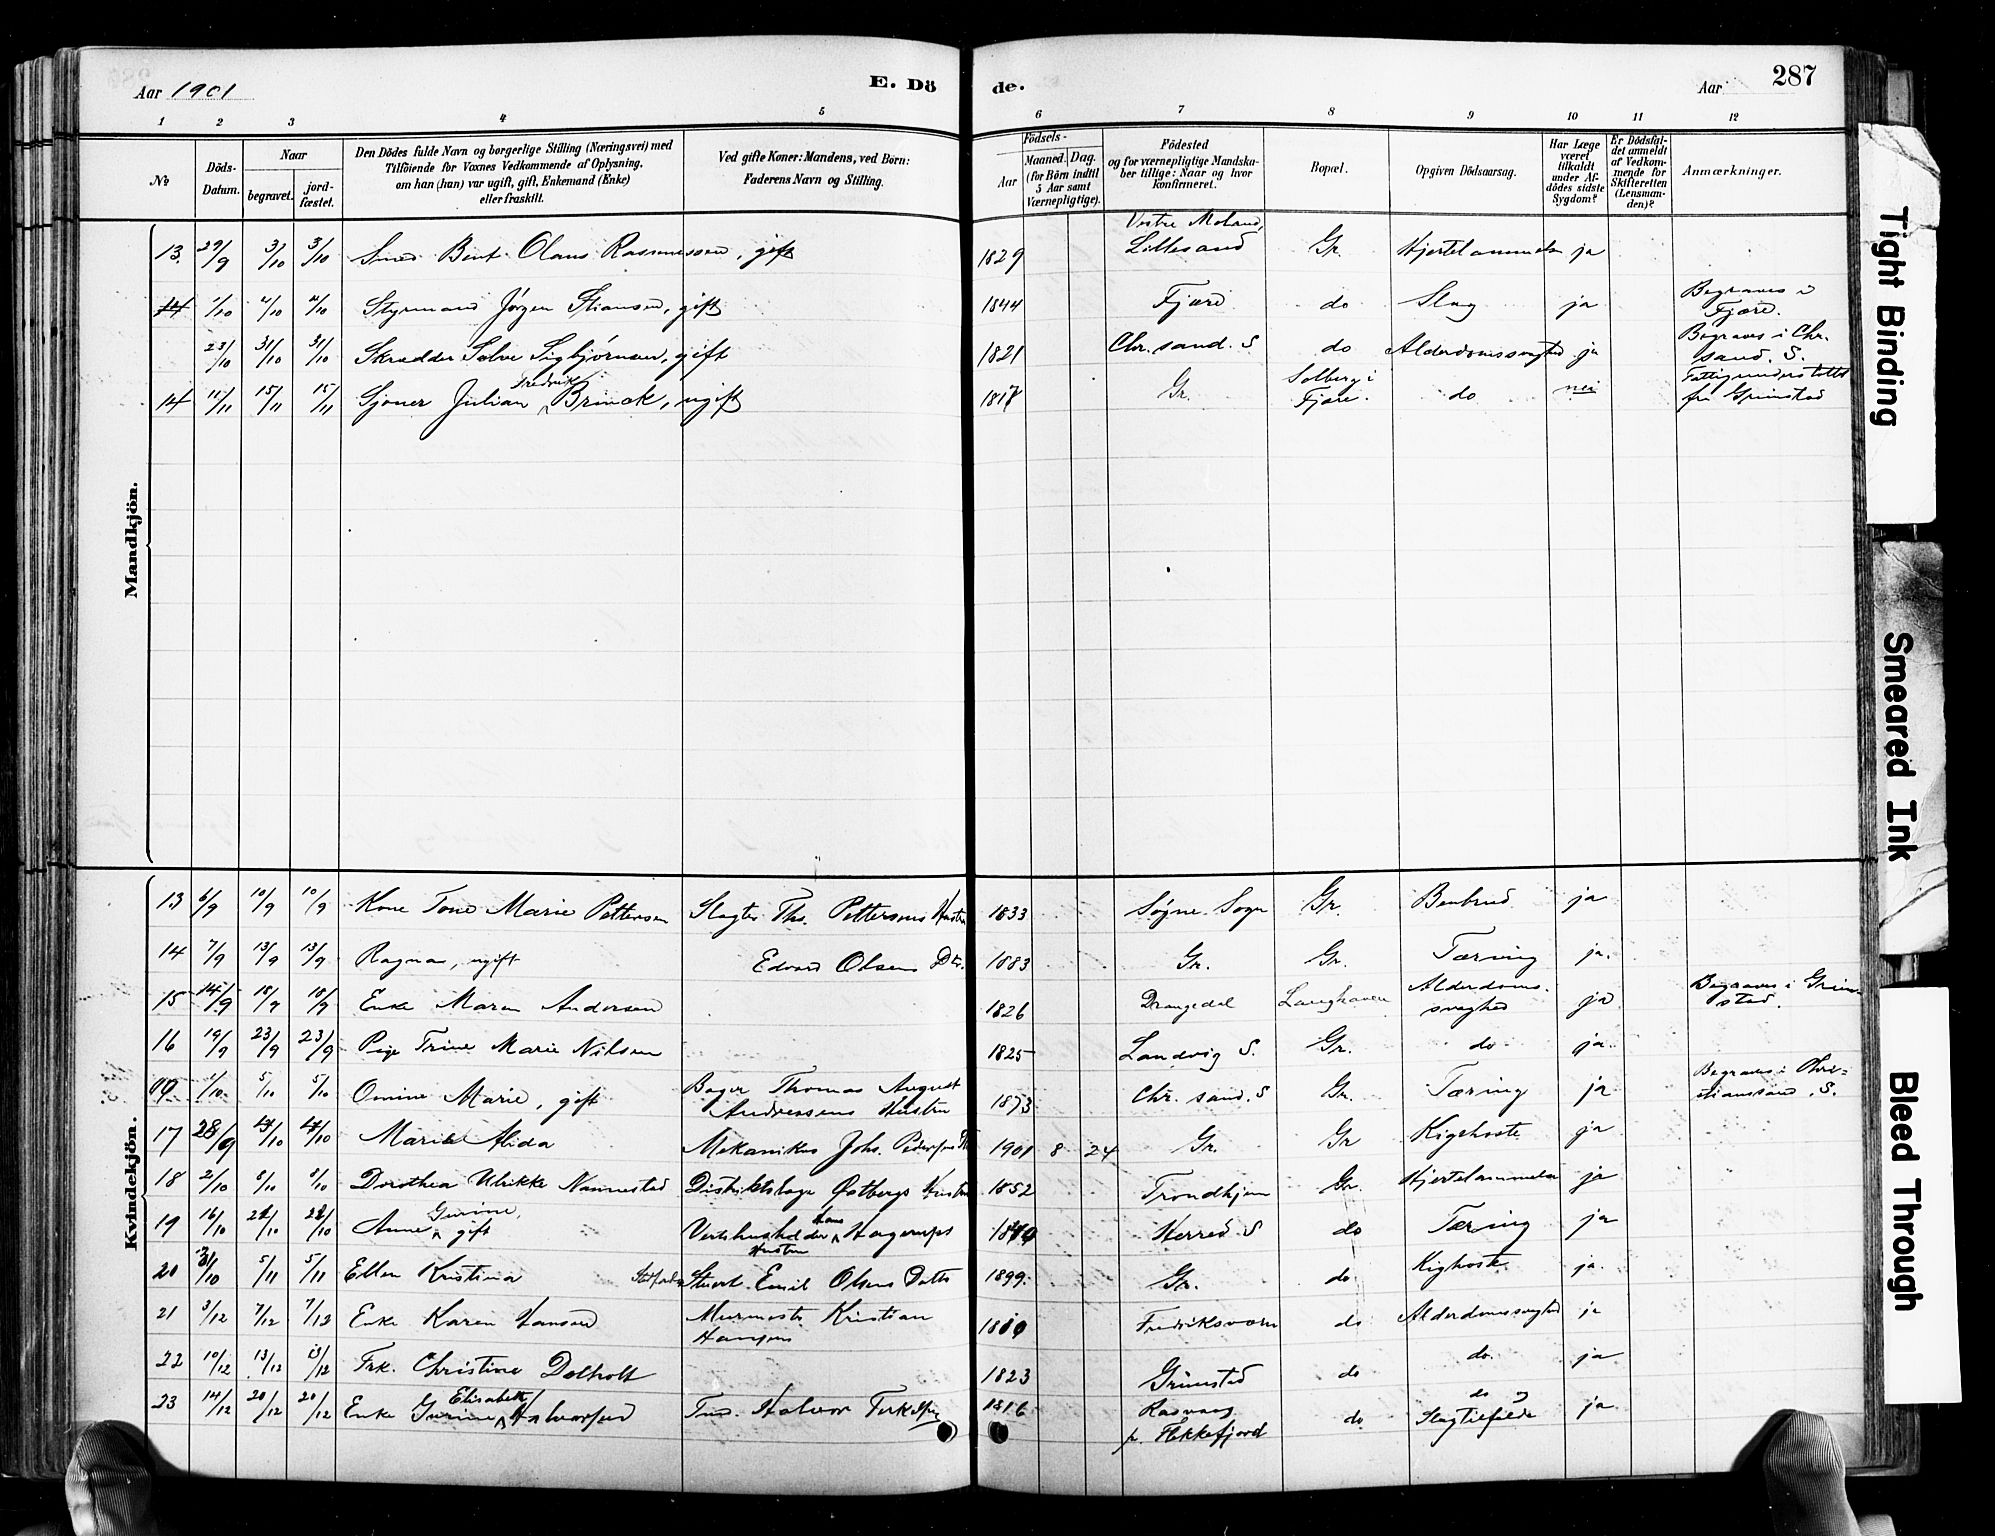 Aar 1901
E. Dö
de.
Aar
287
1 2 3 4 5
6 7 8 9 10 11 12
№
Döds-Datum.
Naar
begravet.
jord-fæstet.
Den Dödes fulde Navn og borgerlige Stilling (Næringsvei) med
Tilföiende for Voxnes Vedkommende af Oplysning,
om han (hun) var ugift, gift, Enkemand (Enke)
eller fraskilt.
Ved gifte Koner: Mandens, ved Børn:
Faderens Navn og Stilling.
Födsels-
Aar
Maaned. Dag.
(for Börn indtil
5 Aar samt
Værnepligtige).
Födested
og for værnepligtige Mandska-
ber tillige: Naar og hvor
konfirmeret.
Bopæl.
Opgiven Dödsaarsag.
Har Læge
været
tilkaldt
under Af-
dödes sidste
Sygdom?
Er Dödsfal-
det anmeldt
af Vedkom-
mende for
Skifteretten
(Lensman-
den)?
Anmærkninger.
Mandkjön.
13. 29/9 3/10 3/10 Smed Bent Olaus Rasmussen, gift 1829 Vestre Moland, Lillesand Gr. Hjertelammelse ja
14 1/10 4/10 4/10 Styrmand Jørgen Stiansen, gift 1844 Fjære do Slag ja Begraves i Fjære.
23/10 31/10 31/10 Skrædder Salve Sigbjørnsen, gift 1821 Chr. sand. S do Alderdomssvaghed ja Begraves i Chr. sand. S.
14 11/11 15/11 15/11 Sjømr Julian Fredrik Brinck, ugift 1817 Gr. Solberg i Fjære. do nei Fattigunderstøttet fra Grimstad
Kvindekjön.
13 6/9 10/9 10/9 Kone Tone Marie Pettersen Slagter Ths. Pettersens Hustru 1833 Søgne Sogn Gr. Benbrud ja
14 7/9 13/9 13/9 Ragna, ugift Edvard Olsens Dtr. 1883 Gr. Gr. Tæring ja.
15 14/9 18/9 18/9 Enke Maren Andersen 1826 Drangedal Langhaven Alderdoms-svaghed ja Begraves i Grimstad.
16 19/9 23/9 23/9 Pige Trine Marie Nilsen 1825 Landvig S. Gr. do ja.
1/10 5/10 5/10 Omine Marie, gift Bager Thomas August Andreasens Hustru 1873 Chr. sand. S Gr. Tæring ja Begraves i Christianssand. S.
17 28/9 4/10 4/10 Marie Alida Mekanikus Johs. 1901 8 24 Gr. Gr Kighoste ja
18 2/10 8/10 8/10 Dorothea Ulrikke Nannestad Distriktslæge Østbergs Hustru 1852 Trondhjem Gr. Hjertelammelse ja
19 16/10 22/10 22/10 Anne Gurine, gift Vertshusholder Hans Hagerups Hustru Herred S do Tæring ja
20 31/10 5/11 5/11 Ellen Kristina Stuert Emil Olsens Datter 1899. Gr. do Kighoste ja.
21 3/12 7/12 7/12 Enke Karen Hansen Murmestr Kristian Hansens Fredriksværn do Alderdomssvaghed ja
22 10/12 13/12 13/12 Frk. Christine Dolholt 1823 Grimstad do do. ja
23 14/12 20/12 20/12 Enke Gurine Elisabeth Halvorsen Halvor 1816 p. Flekkefjord do do ja
Tight Binding
Smeared Ink
Bleed Through